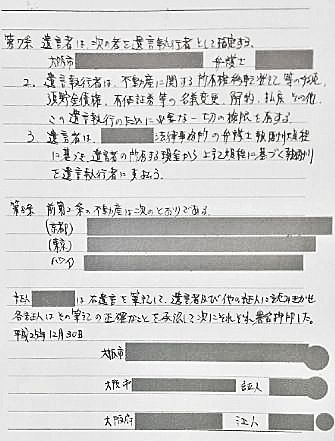 第7条 遺言者は、次の者を遺言執行者として指定する。
大阪市 弁護士
2. 遺言執行者は、不動産に関する所有権移転登記等の手続、
預貯金債権、有価証券等の名義変更、解約、払戻、その他、
この遺言の執行のために必要な一切の権限を有する。
3. 遺言者は、 法律事務所の弁護士報酬規程
に基づき、遺言者の所有する現金から上記規程に基づく報酬
を遺言執行者に支払う。
第8条 前第2条の不動産は次のとおりである。
(京都)
(東京)
(ハワイ)
証人 は右遺言を筆記して、遺言者及び他の証人に読み聞かせ
各証人はその筆記の正確なことを承認して次にそれぞれ署名押印した。
平成25年12月30日
大阪市
大阪市 証人
大阪府 証人